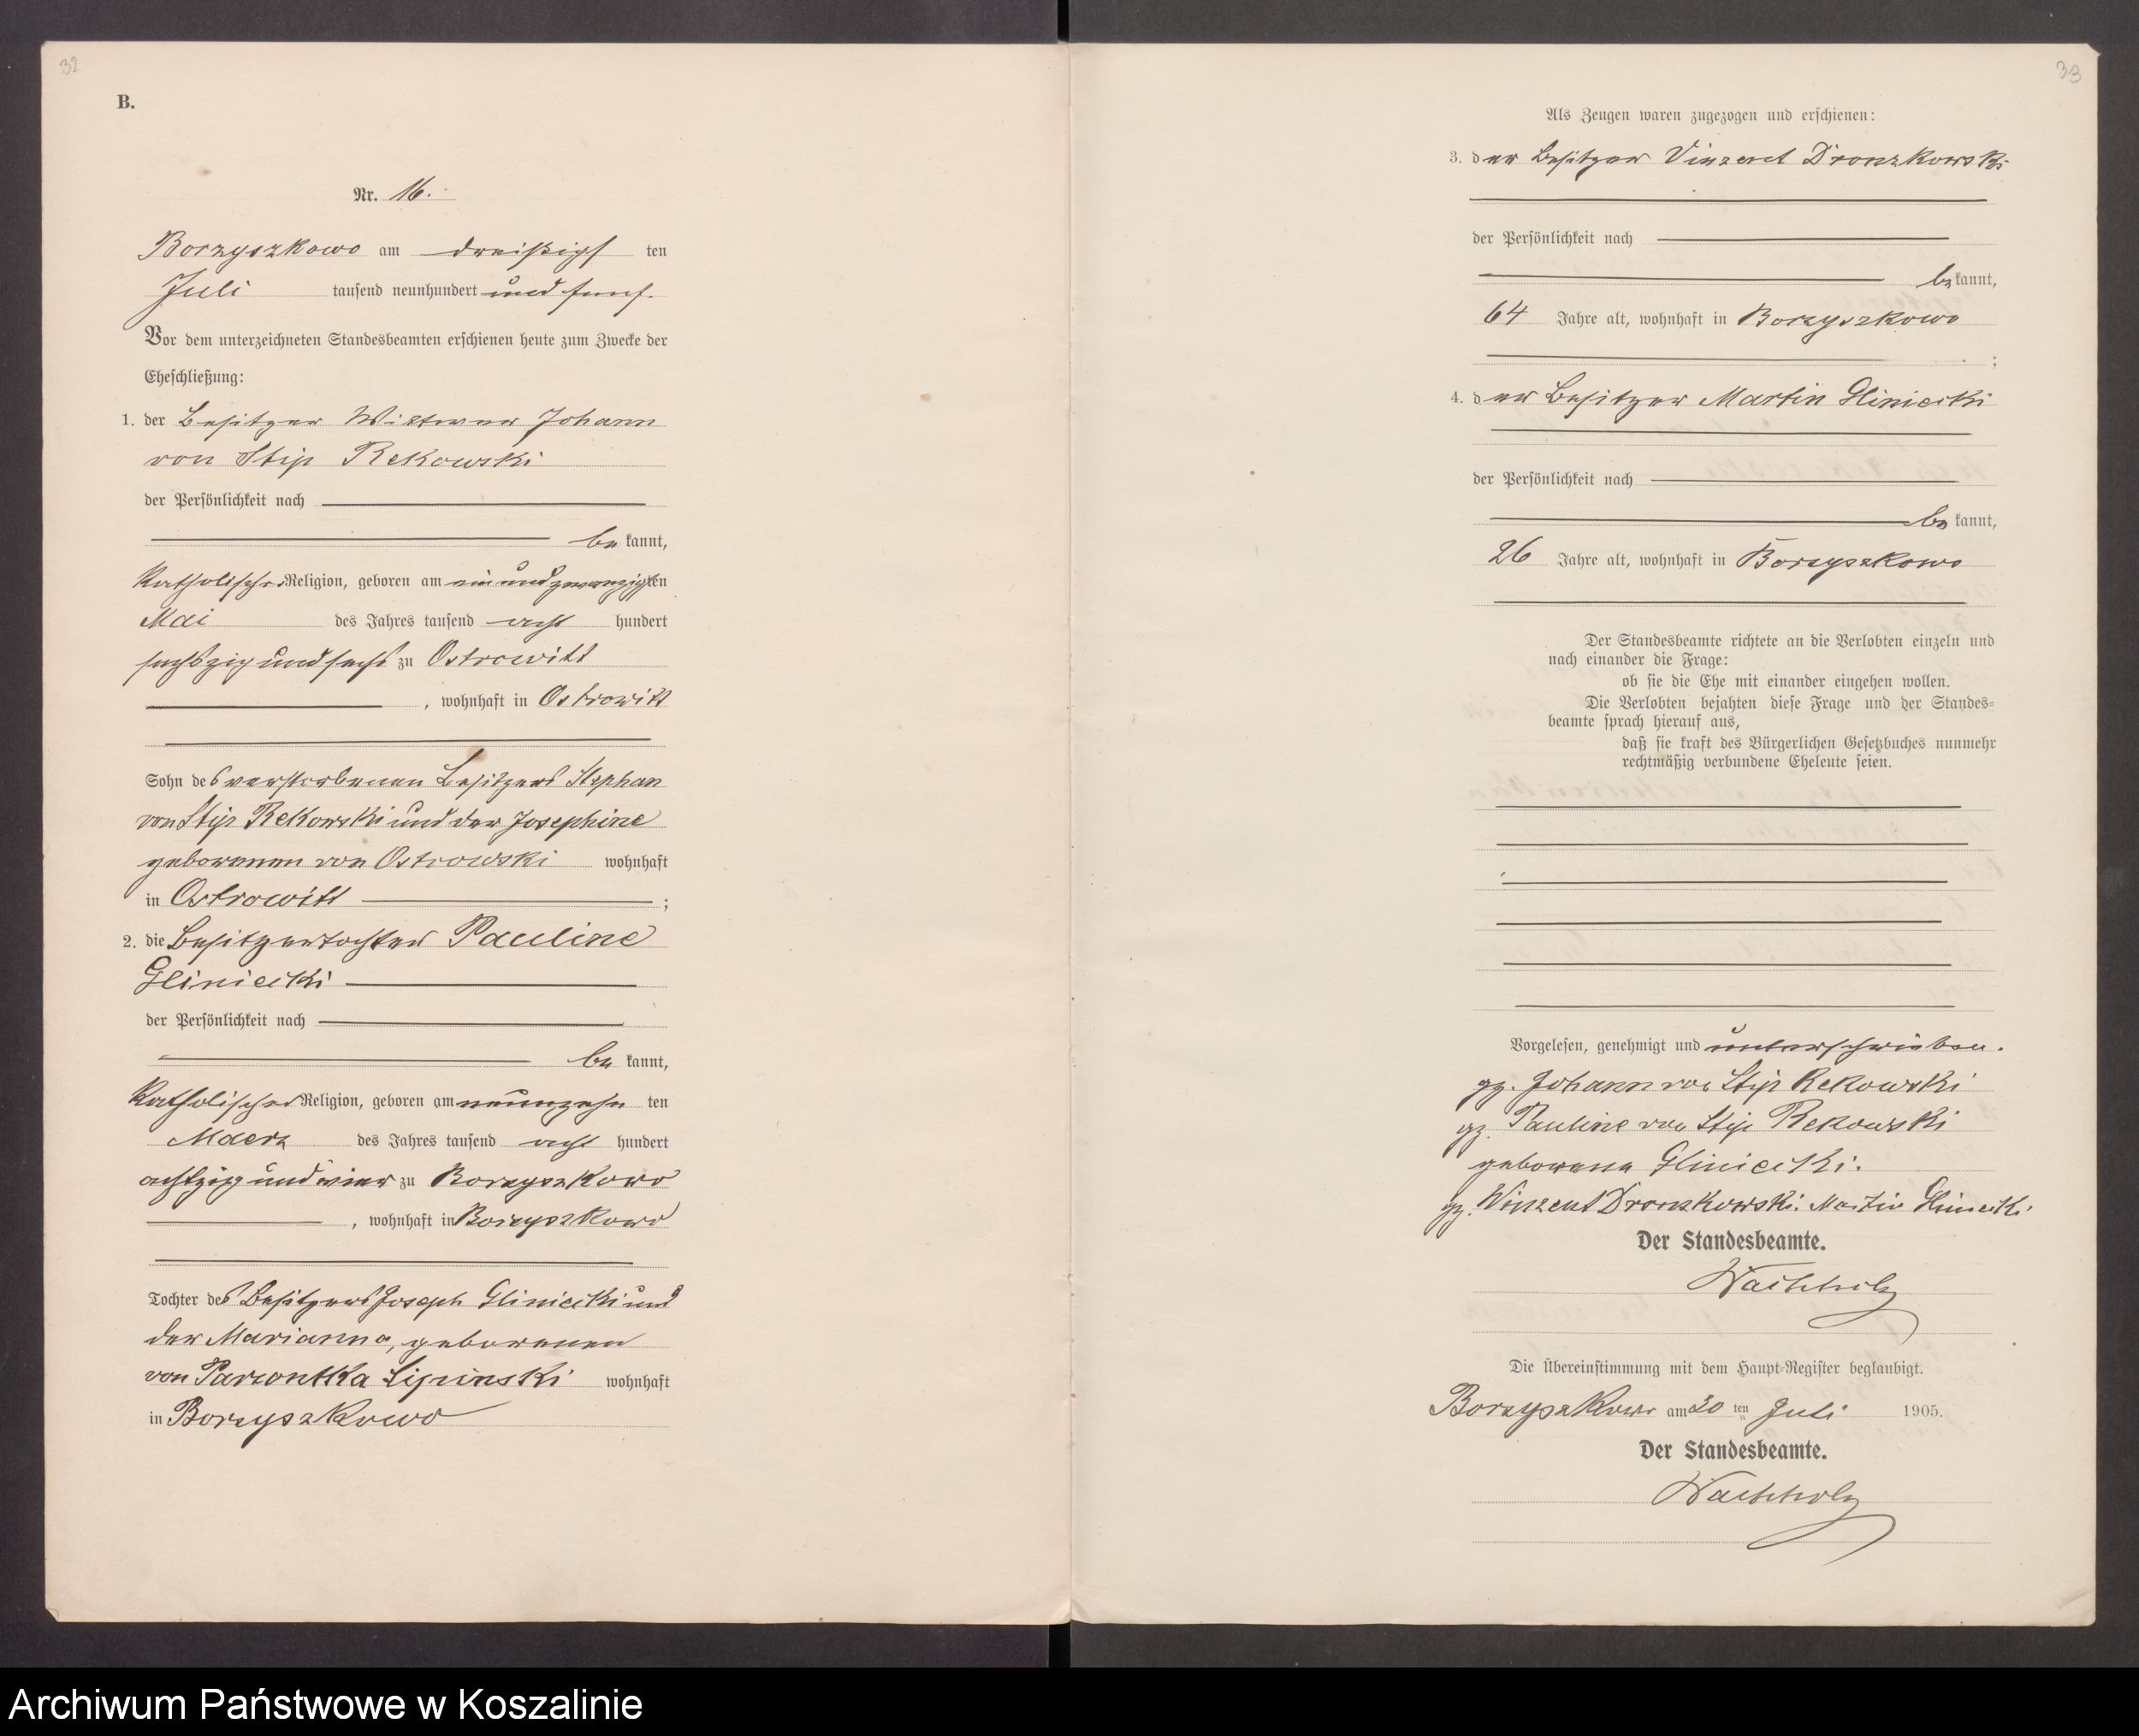 32
B.
Nr. 16.
Borzyszkowo am dreißigs ten
Juli tausend neunhundert und fünf.
Vor dem unterzeichneten Standesbeamten erschienen heute zum Zwecke der
Eheschließung:
1. der Besitzer Wittwer Johann
von Styp Rekowski
der Persönlichkeit nach
be kannt,
katholischer Religion, geboren am einundzwanzigsten
Mai des Jahres tausend acht hundert
sechszig und sechs zu Ostrowitt
, wohnhaft in Ostrowitt
Sohn des verstorbenen Besitzers Stephan
von Styp Rekowski und der Josephine
geborenen von Ostrowski wohnhaft
in Ostrowitt ;
2. die Besitzertochter Pauline
Gliniecki
der Persönlichkeit nach
be kannt,
katholischer Religion, geboren am neunzehn ten
Maerz des Jahres tausend acht hundert
achtzig und vier zu Borzyszkowo
, wohnhaft in Borzyszkowo
Tochter des Besitzers Joseph Gliniecki und
der Marianna, geborenen
von Parzontka Lipinski wohnhaft
in Borzyszkowo
33
Als Zeugen waren zugezogen und erschienen:
3. der Besitzer Vinzent Dronzkowski
der Persönlichkeit nach
be kannt,
64 Jahre alt, wohnhaft in Borzyszkowo
;
4. der Besitzer Martin Gliniecki
der Persönlichkeit nach
be kannt,
26 Jahre alt, wohnhaft in Borzyszkowo
Der Standesbeamte richtete an die Verlobten einzeln und
nach einander die Frage:
ob sie die Ehe mit einander eingehen wollen.
Die Verlobten bejahten diese Frage und der Standes-
beamte sprach hierauf aus,
daß sie kraft des Bürgerlichen Gesetzbuches nunmehr
rechtmäßig verbundene Eheleute seien.
Vorgelesen, genehmigt und unterschrieben.
gz. Johann von Styp Rekowski
gz. Pauline von Styp Rekowski
geborene Gliniecki.
gz. Winzent Dronzkowski. Martin Gliniecki.
Der Standesbeamte.
Wachholz
Die Übereinstimmung mit dem Haupt-Register beglaubigt.
Borzyszkowo am 30 ten Juli 1905.
Der Standesbeamte.
Wachholz
Archiwum Państwowe w Koszalinie